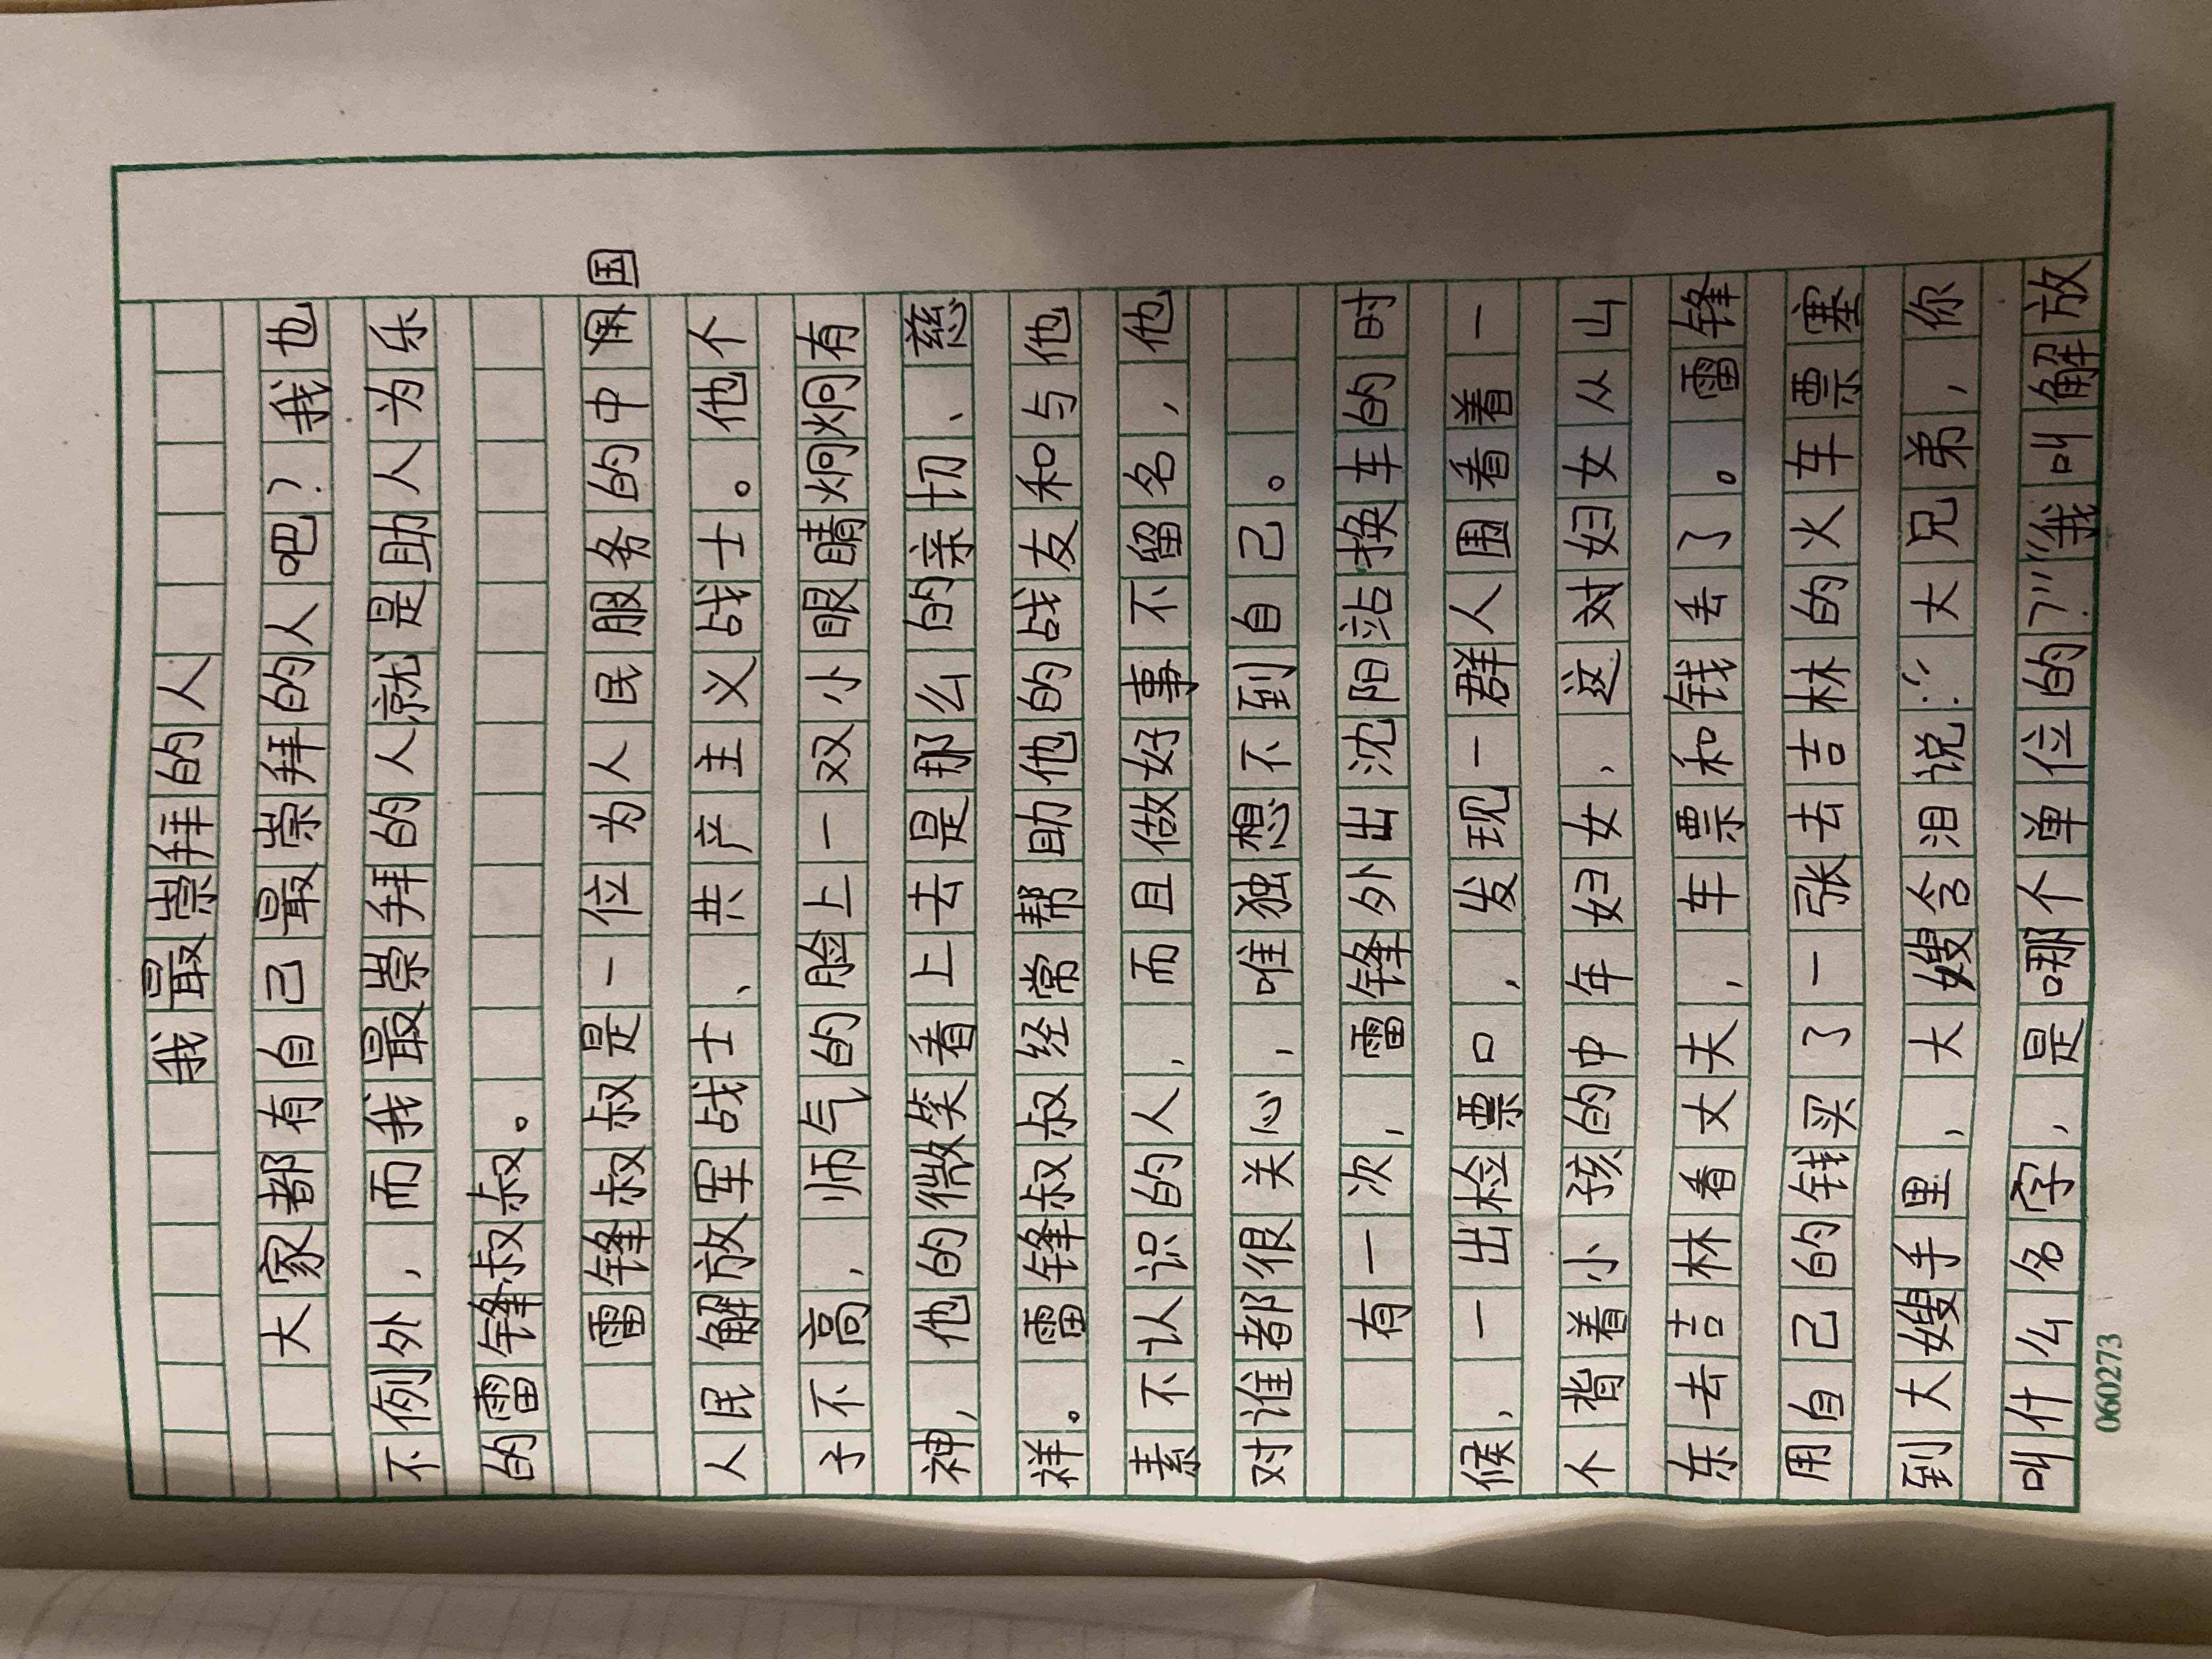 我最崇拜的人
大家都有自己最崇拜的人吧？我也
不例外，而我最崇拜的人就是助人为乐
的雷锋叔叔。
雷锋叔叔是一位为人民服务的中国
人民解放军战士、共产主义战士。他个
子不高，师气的脸上一双小眼睛炯炯有
神，他的微笑看上去是那么的亲切、慈
祥。雷锋叔叔经常帮助他的战友和与他
素不认识的人，而且做好事不留名，他
对谁都很关心，唯独想不到自己。
有一次，雷锋外出沈阳站换车的时
候，一出检票口，发现一群人围看着一
个背着小孩的中年妇女，这对妇女从山
东去吉林看丈夫，车票和钱丢了。雷锋
用自己的钱买了一张去吉林的火车票塞
到大嫂手里，大嫂含泪说：“大兄弟，你
叫什么名字，是哪个单位的？”“我叫解放
060273